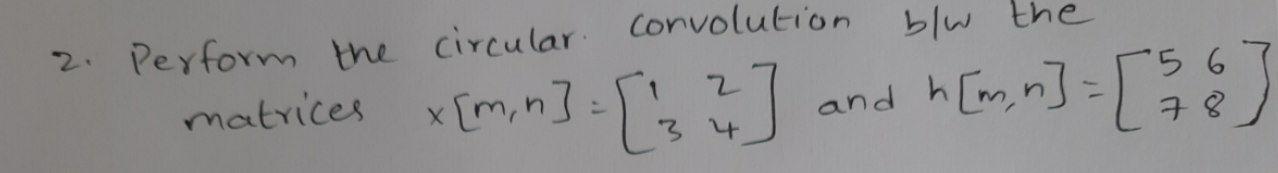 2. Perform the circular. convolution b/w the
matrices x[m,n] = [1 2 3 4] and h[m,n] = [5 6 7 8]